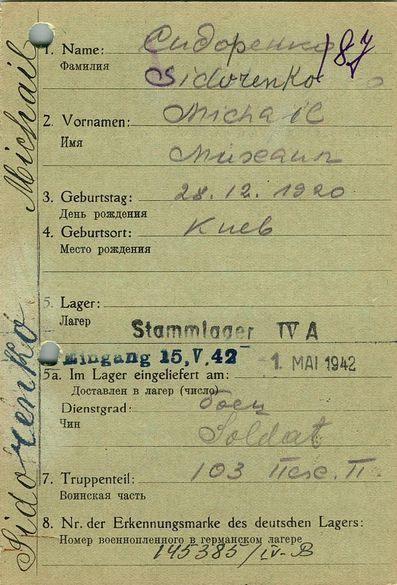 1. Name: Сидоренко
Фамилия Sidorenko
2. Vornamen: Michail
Имя Михаил
3. Geburtstag: 28.12.1920
День рождения
4. Geburtsort: Киев
Место рождения
5. Lager:
Лагер Stammlager IV A
Eingang 15.V.42 - 1. MAI 1942
5a. Im Lager eingeliefert am:
Доставлен в лагер (число)
Dienstgrad: боец
Чин Soldat
7. Truppenteil: 103
Воинская часть
8. Nr. der Erkennungsmarke des deutschen Lagers:
Номер военнопленного в германском лагере
145385/IV-B
Sidorenko Michail